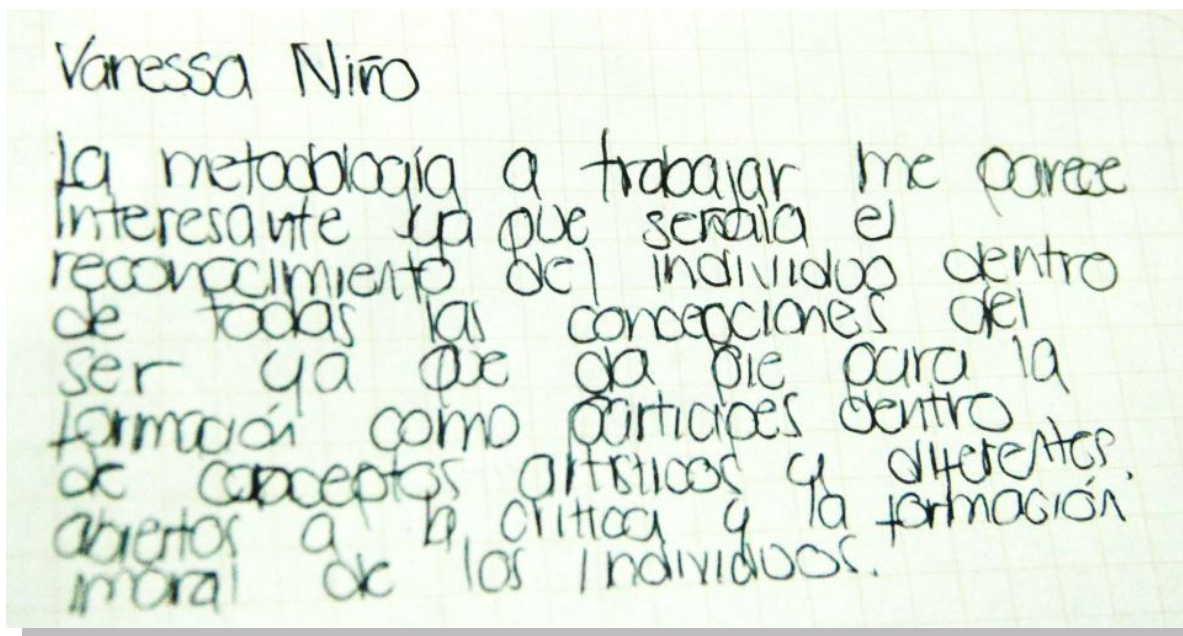 Vanessa Niño
La metodología a trabajar me parece
interesante ya que señala el
reconocimiento del individuo dentro
de todas las concepciones del
ser ya que da pie para la
formación como participes dentro
de conceptos artisticos y diferentes.
abiertos a la critica y la formación
moral de los individuos.